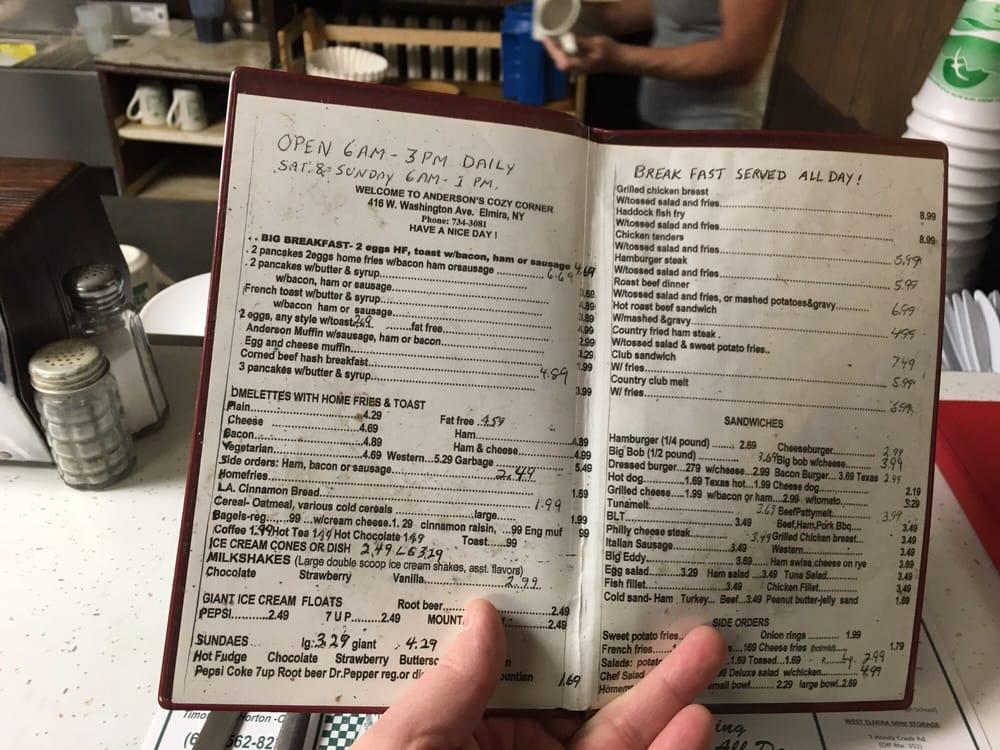 OPEN 6AM - 3PM DAILY
SAT. & SUNDAY 6AM - 1 PM.
WELCOME TO ANDERSON'S COZY CORNER
416 W. Washington Ave. Elmira, NY
Phone: 734-3081
HAVE A NICE DAY !
BIG BREAKFAST- 2 eggs HF, toast w/bacon, ham or sausage 4.69
2 pancakes 2eggs home fries w/bacon ham orsausage 6.69
2 pancakes w/butter & syrup 3.69
w/bacon, ham or sausage 4.89
French toast w/butter & syrup 3.89
w/bacon ham or sausage 4.99
2 eggs, any style w/toast fat free 2.99
Anderson Muffin w/sausage, ham or bacon 3.29
Egg and cheese muffin 1.99
Corned beef hash breakfast 4.89
3 pancakes w/butter & syrup 3.99
OMELETTES WITH HOME FRIES & TOAST
Plain 4.29 Fat free 4.59
Cheese 4.69 Ham 4.89
Bacon 4.89 Ham & cheese 4.99
Vegetarian 4.69 Western..5.29 Garbage 5.49
Side orders: Ham, bacon or sausage 2.49
Homefries 1.69
L.A. Cinnamon Bread 1.99
Cereal- Oatmeal, various cold cereals large 1.99
Bagels-reg .99 w/cream cheese.1. 29 cinnamon raisin, ..99 Eng muf 99
Coffee 1.49 Hot Tea 1.49 Hot Chocolate 1.49 Toast .99
ICE CREAM CONES OR DISH 2.49 LG 3.29
MILKSHAKES (Large double scoop ice cream shakes, asst. flavors)
Chocolate Strawberry Vanilla 2.99
GIANT ICE CREAM FLOATS Root beer 2.49
PEPSI 2.49 7 U P 2.49 MOUNT 2.49
SUNDAES lg. 3.29 giant 4.29
Hot Fudge Chocolate Strawberry Buttersc
Pepsi Coke 7up Root beer Dr.Pepper reg.or di ountian 1.69
BREAK FAST SERVED ALL DAY!
Grilled chicken breast
W/tossed salad and fries 8.99
Haddock fish fry
W/tossed salad and fries 8.99
Chicken tenders
W/tossed salad and fries 5.99
Hamburger steak
W/tossed salad and fries 5.95
Roast beef dinner
W/tossed salad and fries, or mashed potatoes&gravy 6.99
Hot roast beef sandwich
W/mashed &gravy 4.95
Country fried ham steak
W/tossed salad & sweet potato fries.. 7.49
Club sandwich
W/ fries 5.99
Country club melt
W/ fries 5.99
SANDWICHES
Hamburger (1/4 pound) 2.69 Cheeseburger 2.99
Big Bob (1/2 pound) 3.69 Big bob w/cheese 3.99
Dressed burger 279 w/cheese 2.99 Bacon Burger 3.69 Texas 2.99
Hot dog 1.69 Texas hot 1.99 Cheese dog 2.19
Grilled cheese 1.99 w/bacon or ham 2.99 w/tomato 3.29
Tunamelt 3.69 BeefPattymelt 3.99
BLT 3.49 Beef,Ham,Pork Bbq 3.49
Philly cheese steak 3.49 Grilled Chicken breast 3.49
Italian Sausage 3.49 Western 3.49
Big Eddy 3.69 Ham swiss cheese on rye 3.69
Egg salad 3.29 Ham salad 3.49 Tuna Salad 3.49
Fish fillet 3.49 Chicken Fillet 3.49
Cold sand- Ham Turkey Beef 3.49 Peanut butter-jelly sand 1.69
SIDE ORDERS
Sweet potato fries Onion rings 1.99
French fries 169 Cheese fries 1.79
Salads: potat 1.69 Tossed 1.69 Lg. 2.99
Chef Salad Deluxe salad w/chicken 4.99
Homem small bowl 2.29 large bowl 2.69
Horton
562-82
WEST ELMIRA MINI STORAGE
7 Hendy Creek Rd
(Off Rte. 352)